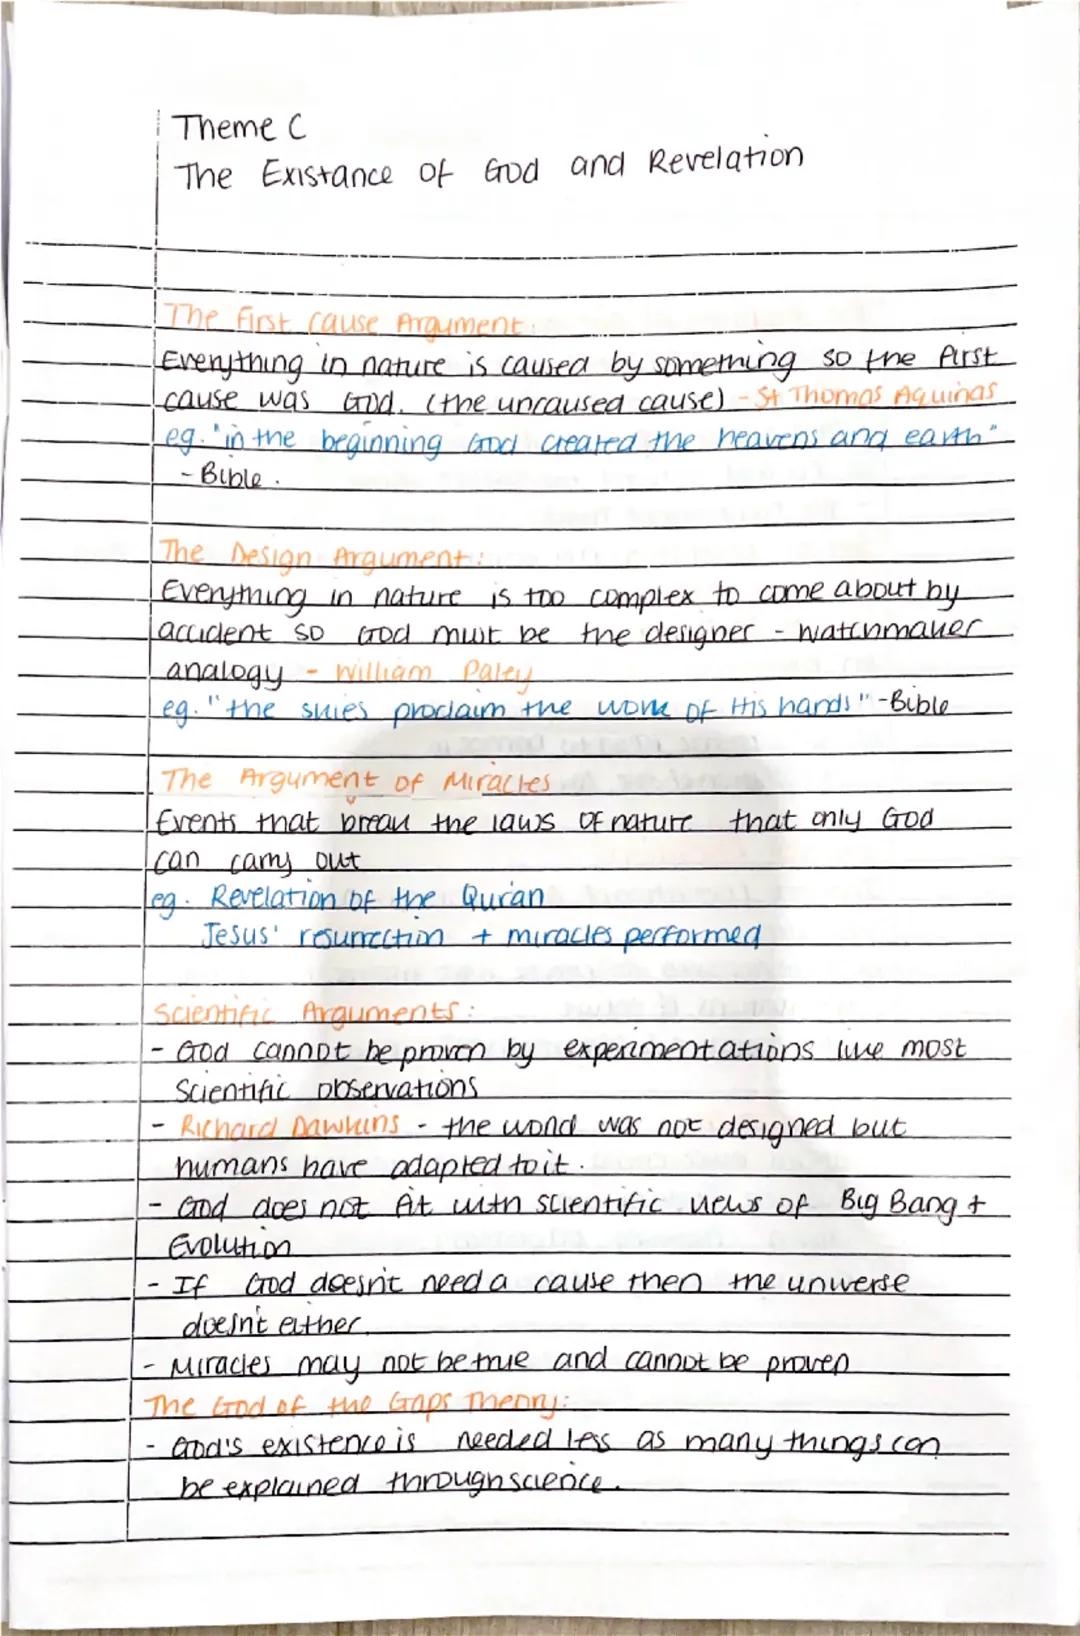 Theme C
The Existance of God and Revelation
The First Cause Argument:
Everything in nature is caused by something so the first
cause was God. (the uncaused cause) - St Thomas Aquinas
eg. "in the beginning God created the heavens and earth"
- Bible.
The Design Argument:
Everything in nature is too complex to come about by
accident so God must be the designer - watchmaker
analogy - William Paley
eg. "the skies proclaim the work of His hands" - Bible
The Argument of Miracles
Events that break the laws of nature that only God
can carry out
eg. Revelation of the Quran
Jesus' resurrection + miracles performed
Scientific Arguments:
- God cannot be proven by experimentations like most
Scientific observations
- Richard Dawkins - the world was not designed but
humans have adapted to it.
- God does not fit with scientific views of Big Bang +
Evolution
- If God doesn't need a cause then the universe
doesn't either.
- Miracles may not be true and cannot be proven
The God of the Gaps Theory:
- God's existence is needed less as many things can
be explained through science.